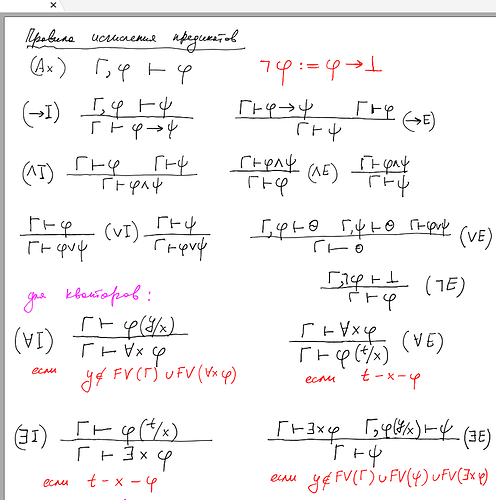 Правила исчисления предикатов
(Ax) Γ, φ ⊢ φ ¬φ := φ → ⊥
(→I) Γ, φ ⊢ ψ / Γ ⊢ φ → ψ Γ ⊢ φ → ψ Γ ⊢ φ / Γ ⊢ ψ (→E)
(∧I) Γ ⊢ φ Γ ⊢ ψ / Γ ⊢ φ∧ψ Γ ⊢ φ∧ψ / Γ ⊢ φ (∧E) Γ ⊢ φ∧ψ / Γ ⊢ ψ
Γ ⊢ φ / Γ ⊢ φ∨ψ (∨I) Γ ⊢ ψ / Γ ⊢ φ∨ψ Γ, φ ⊢ θ Γ, ψ ⊢ θ Γ ⊢ φ∨ψ / Γ ⊢ θ (∨E)
Γ, ¬φ ⊢ ⊥ / Γ ⊢ φ (¬E)
для кванторов:
(∀I) Γ ⊢ φ(y/x) / Γ ⊢ ∀x φ Γ ⊢ ∀x φ / Γ ⊢ φ(t/x) (∀E)
если y ∉ FV(Γ) ∪ FV(∀x φ) если t - x - φ
(∃I) Γ ⊢ φ(t/x) / Γ ⊢ ∃x φ Γ ⊢ ∃x φ Γ, φ(y/x) ⊢ ψ / Γ ⊢ ψ (∃E)
если t - x - φ если y ∉ FV(Γ) ∪ FV(ψ) ∪ FV(∃x φ)